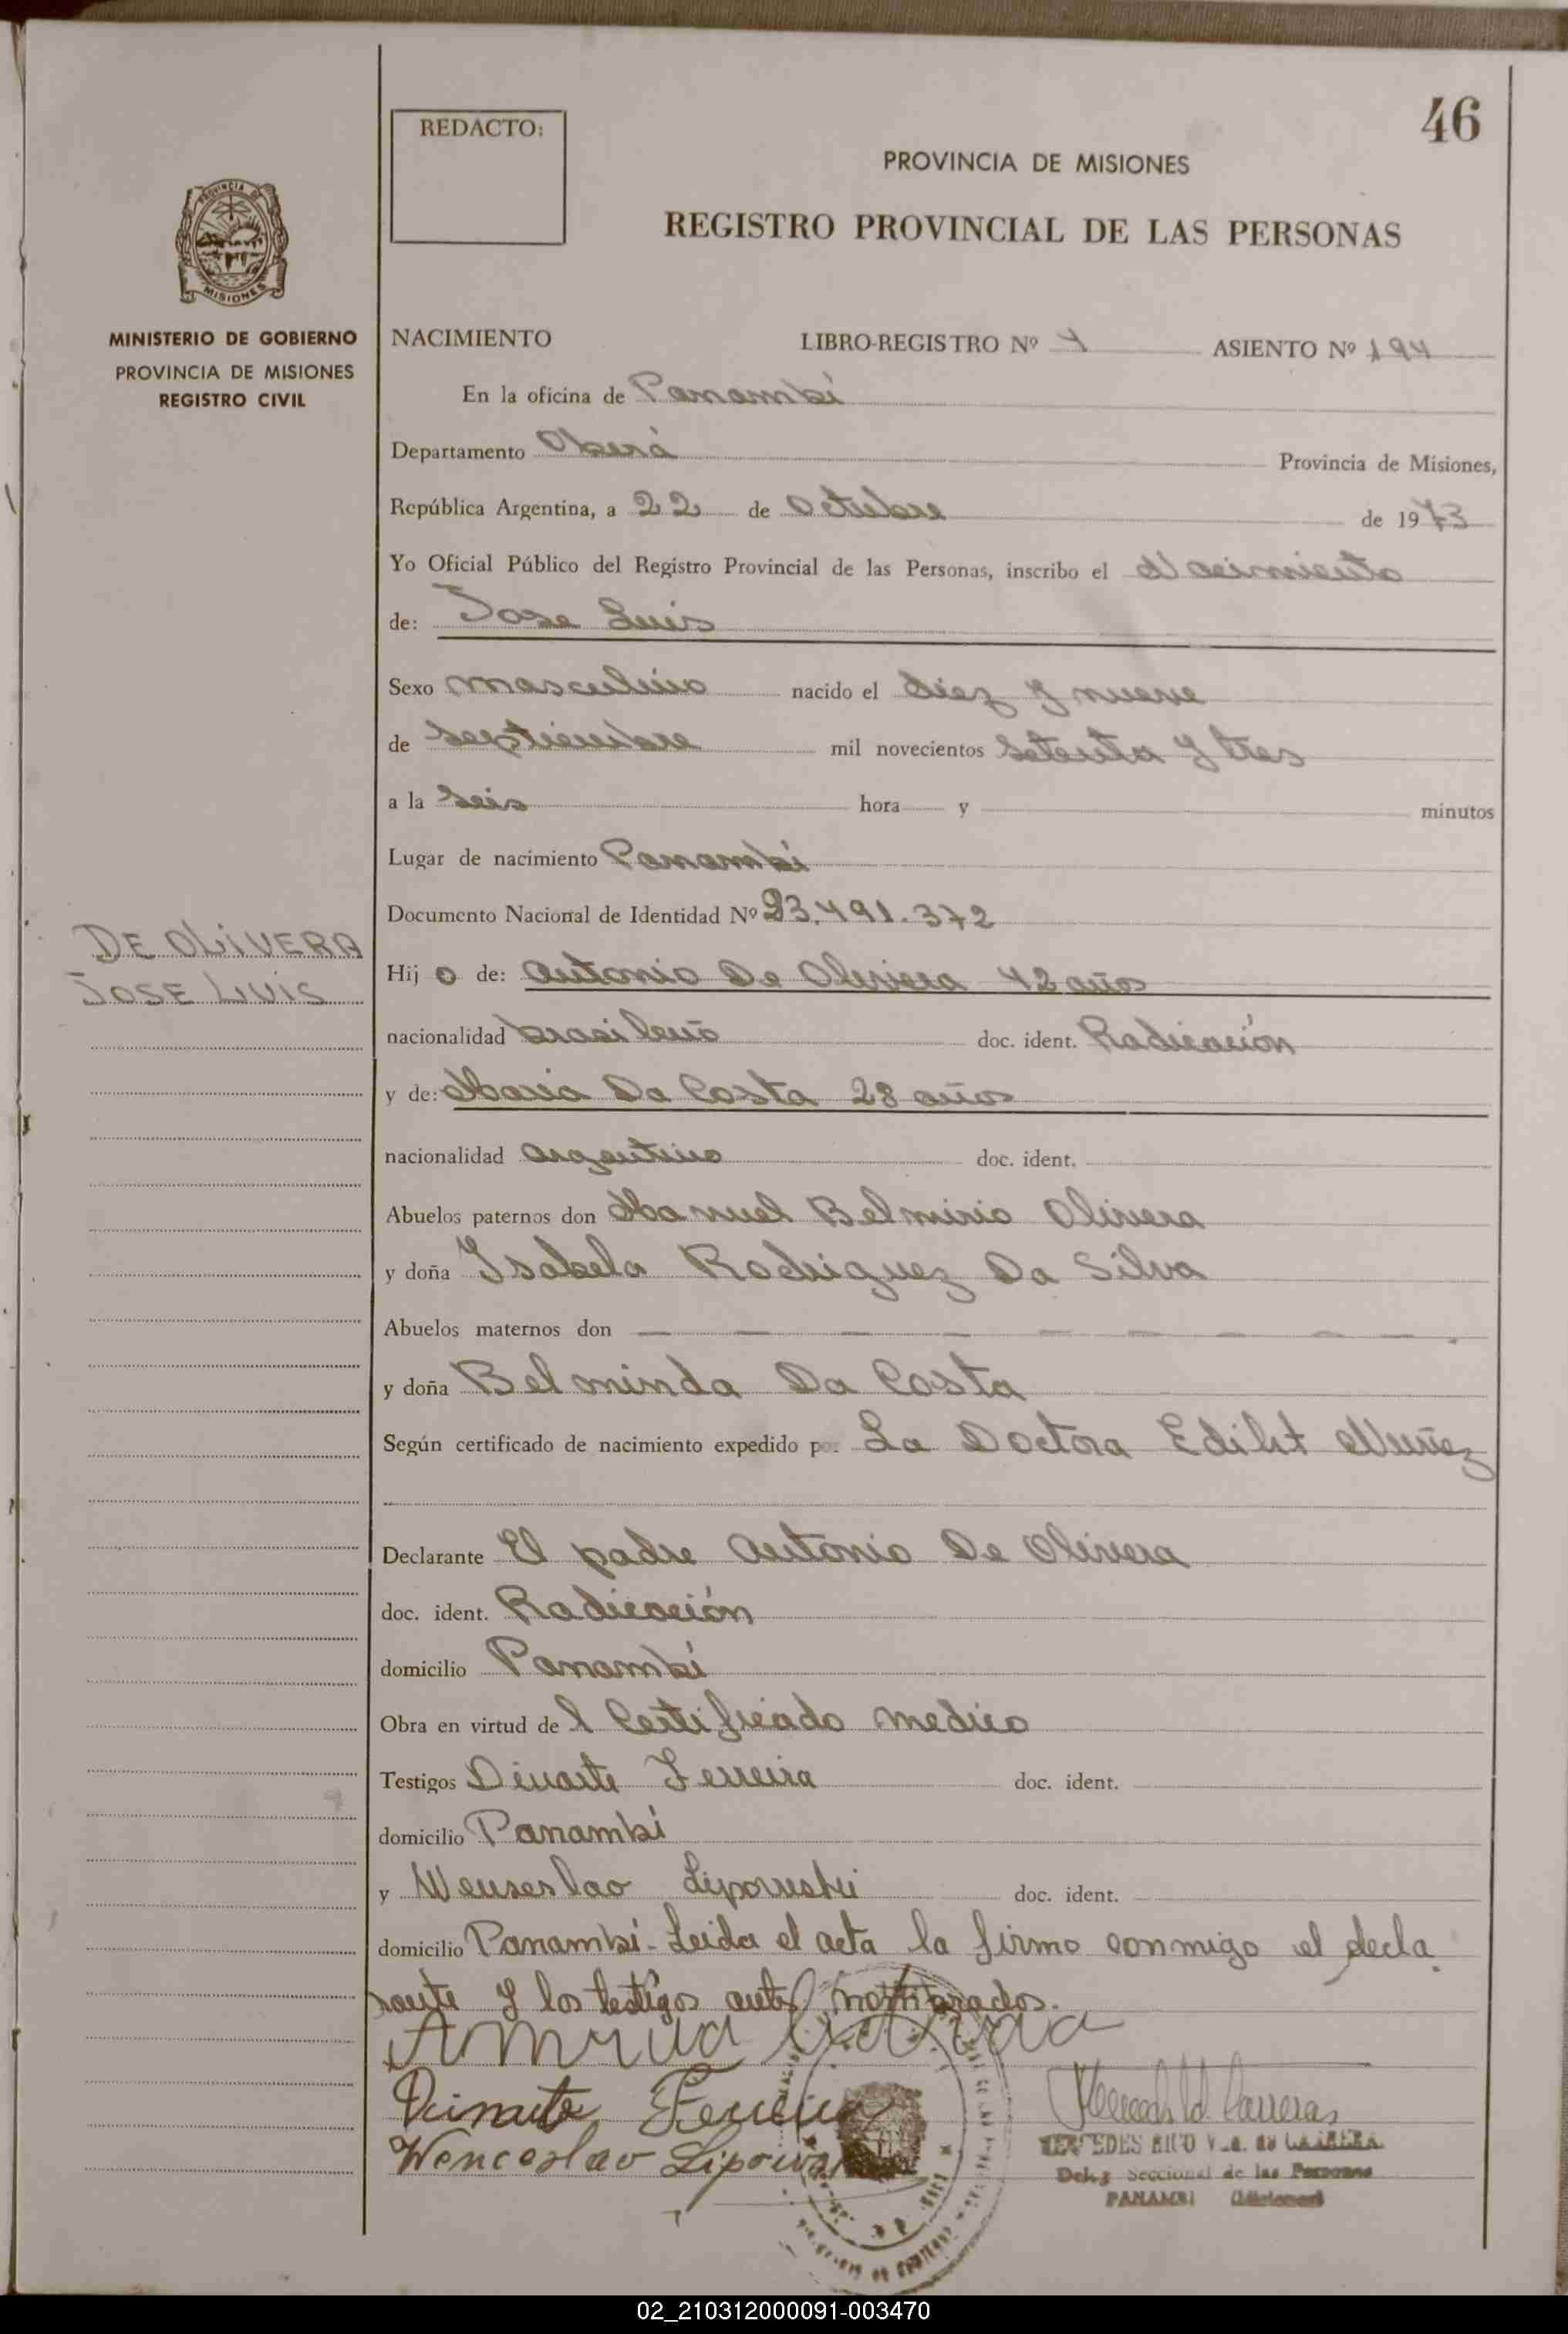 46
REDACTO:
PROVINCIA DE MISIONES
REGISTRO PROVINCIAL DE LAS PERSONAS
PROVINCIA DE
MISIONES
MINISTERIO DE GOBIERNO
PROVINCIA DE MISIONES
REGISTRO CIVIL
NACIMIENTO LIBRO-REGISTRO Nº ASIENTO Nº 194
En la oficina de Panambí
Departamento Oberá Provincia de Misiones,
República Argentina, a 22 de Octubre de 1973
Yo Oficial Público del Registro Provincial de las Personas, inscribo el Nacimiento
de: Jose Luis
Sexo masculino nacido el diez y nueve
de septiembre mil novecientos setenta y tres
a la seis hora y minutos
Lugar de nacimiento Panambí
Documento Nacional de Identidad Nº 23.491.372
DE OLIVERA
JOSE LUIS
Hijo de: Antonio De Olivera 42 años
nacionalidad brasileño doc. ident. Radicación
y de: Maria Da Costa 28 años
nacionalidad argentina doc. ident.
Abuelos paternos don Manuel Belmirio Olivera
y doña Isabela Rodriguez Da Silva
Abuelos maternos don — — — — — — — —
y doña Belminda Da Costa
Según certificado de nacimiento expedido por La Doctora Ediht Nuñez
Declarante El padre Antonio De Olivera
doc. ident. Radicación
domicilio Panambí
Obra en virtud del Certificado medico
Testigos Dinarte Ferreira doc. ident.
domicilio Panambí
y Wenseslao doc. ident.
domicilio Panambí - Leida el acta la firma conmigo el decla
rante y los testigos antes nombrados.
Dinarte Ferreira
Wenceslao
Carreras
Seccional de las Personas
PANAMBI (Misiones)
02_210312000091-003470